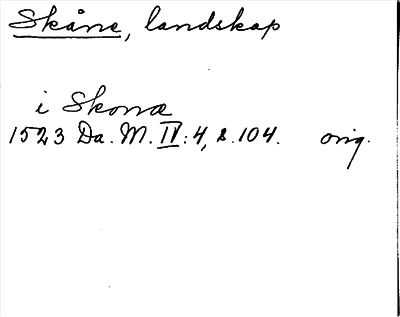 Skåne, landskap
i Skonæ
1523 Da. M. IV: 4, s. 104. orig.